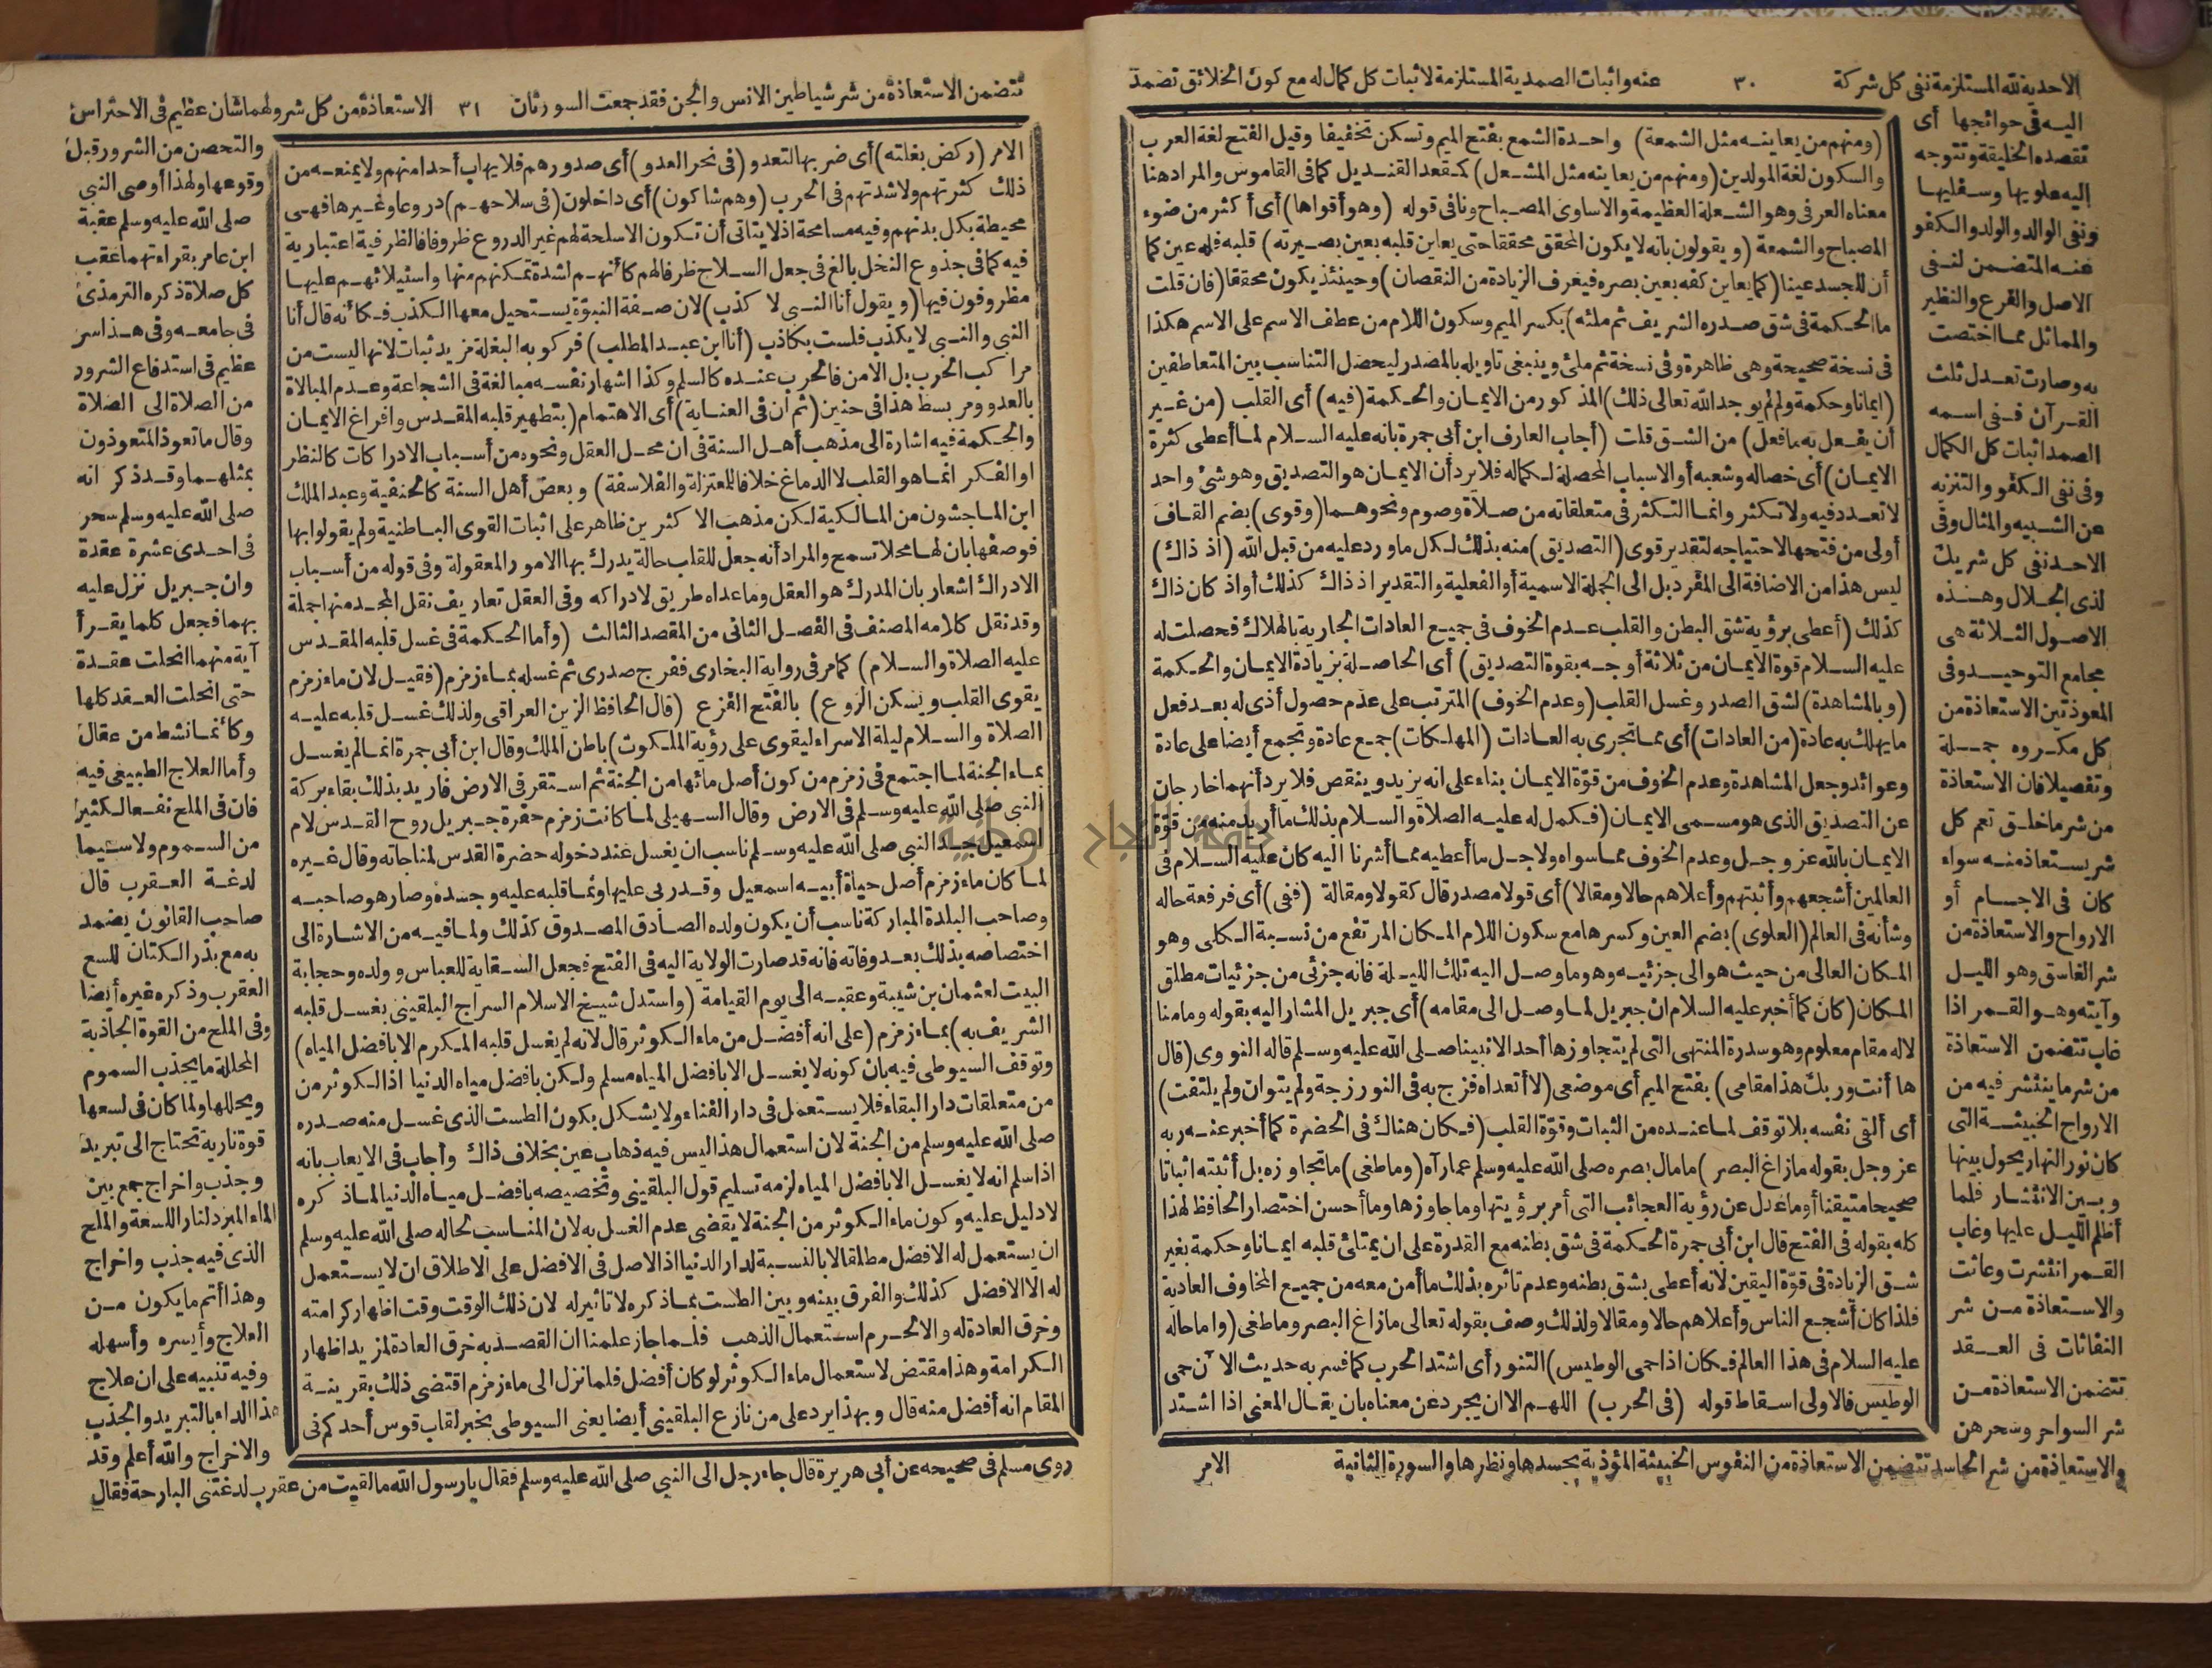 الاحدية لله المستلزمة نفى كل شركة
٣٠
عنه واثبات الصمدية المستلزمة لاثبات كل كمال له مع كون الخلائق تصمد
اليه فى حوائجها أى
تقصده الخليقة وتتوجه
إليه علويها وسفليها
ونفى الوالد والولد والكفو
عنه المتضمن لنفى
الاصل والفرع والنظير
والمماثل مما اختصت
به وصارت تعدل ثلث
القرآن ففى اسمه
الصمد اثبات كل الكمال
وفى نفى الكفو والتنزيه
عن الشبيه والمثال وفى
الاحد نفى كل شريك
لذى الجلال وهذه
الاصول الثلاثة هى
مجامع التوحيد وفى
المعوذتين الاستعاذة من
كل مكروه جملة
وتفصيلا فان الاستعاذة
من شر ما خلق تعم كل
شر يستعاذ منه سواء
كان فى الاجسام أو
الارواح والاستعاذة من
شر الغاسق وهو الليل
وآيته وهو القمر اذا
غاب تتضمن الاستعاذة
من شر ما ينتشر فيه من
الارواح الخبيثة التى
كان نور النهار يحول بينها
وبين الانتشار فلما
أظلم الليل عليها وغاب
القمر انتشرت وعاثت
والاستعاذة من شر
النفاثات فى العقد
تتضمن الاستعاذة من
شر السواحر وسحرهن
والاستعاذة من شر الحاسد تتضمن الاستعاذة من النفوس الخبيثة المؤذية بحسدها ونظرها والسورة الثانية
(ومنهم من يعاينه مثل الشمعة) واحدة الشمع بفتح الميم وتسكن تخفيفا وقيل الفتح لغة العرب
والسكون لغة المولدين (ومنهم من يعاينه مثل المشعل) كمقعد القنديل كما فى القاموس والمراد هنا
معناه العرفى وهو الشعلة العظيمة والاساوى المصباح ونافى قوله (وهو أقواها) أى أكثر من ضوء
المصباح والشمعة (ويقولون بانه لا يكون المحقق محققا حتى يعاين قلبه بعين بصيرته) قلبه فله عين كما
أن للجسد عينا (كما يعاين كفه بعين بصره فيعرف الزيادة من النقصان) وحينئذ يكون محققا (فان قلت
ما الحكمة فى شق صدره الشريف ثم ملئه) بكسر الميم وسكون اللام من عطف الاسم على الاسم هكذا
فى نسخة صحيحة وهى ظاهرة وفى نسخة ثم ملئ وينبغى تاويله بالمصدر ليحصل التناسب بين المتعاطفين
(ايمانا وحكمة ولم لم يوجد الله تعالى ذلك) المذكور من الايمان والحكمة (فيه) أى القلب (من غير
أن يفعل به ما فعل) من الشق قلت (أجاب العارف ابن أبى جمرة بانه عليه السلام لما أعطى كثرة
الايمان) أى خصاله وشعبه أو الاسباب المحصلة لكماله فلا يرد أن الايمان هو التصديق وهو شئ واحد
لا تعدد فيه ولا تكثر وانما التكثر فى متعلقاته من صلاة وصوم ونحوهما (وقوى) بضم القاف
أولى من فتحها لاحتياجه لتقدير قوى (التصديق) منه بذلك لكل ما ورد عليه من قبل الله (اذ ذاك)
ليس هذا من الاضافة الى المفرد بل الى الجملة الاسمية أو الفعلية والتقدير اذ ذاك كذلك أو اذ كان ذاك
كذلك (أعطى برؤية شق البطن والقلب عدم الخوف فى جميع العادات الجارية بالهلاك فحصلت له
عليه السلام قوة الايمان من ثلاثة أوجه بقوة التصديق) أى الحاصلة بزيادة الايمان والحكمة
(وبالمشاهدة) لشق الصدر وغسل القلب (وعدم الخوف) المترتب على عدم حصول أذى له بعد فعل
ما يهلك به عادة (من العادات) أى مما تجرى به العادات (المهلكات) جمع عادة وتجمع أيضا على عادة
وعوائد وجعل المشاهدة وعدم الخوف من قوة الايمان بناء على انه يزيد وينقص فلا يرد أنهما خارجان
عن التصديق الذى هو مسمى الايمان (فكمل له عليه الصلاة والسلام بذلك ما أريد منه من قوة
الايمان بالله عز وجل وعدم الخوف مما سواه ولاجل ما أعطيه مما أشرنا اليه كان عليه السلام فى
العالمين أشجعهم وأثبتهم وأعلاهم حالا ومقالا) أى قولا مصدر قال كقولا ومقالة (ففى) أى فرفعة حاله
وشأنه فى العالم (العلوى) بضم العين وكسرها مع سكون اللام المكان المرتفع من نسبة الكلى وهو
المكان العالى من حيث هو الى جزئيه وهو ما وصل اليه تلك الليلة فانه جزئى من جزئيات مطلق
المكان (كان كما أخبر عليه السلام ان جبريل لما وصل الى مقامه) أى جبريل المشار اليه بقوله وما منا
الا له مقام معلوم وهو سدرة المنتهى التى لم يتجاوزها أحد الا نبينا صلى الله عليه وسلم قاله النووى (قال
ها أنت وربك هذا مقامى) بفتح الميم أى موضعى (لا أتعداه فزج به فى النور زجة ولم يتوان ولم يلتفت)
أى ألقى نفسه بلا توقف لما عنده من الثبات وقوة القلب (فكان هناك فى الحضرة كما أخبر عنه ربه
عز وجل بقوله ما زاغ البصر) ما مال بصره صلى الله عليه وسلم عما رآه (وما طغى) ما تجاوزه بل أثبته اثباتا
صحيحا متيقنا أو ما عدل عن رؤية العجائب التى أمر برؤيتها وما جاوزها وما أحسن اختصار الحافظ لهذا
كله بقوله فى الفتح قال ابن أبى جمرة الحكمة فى شق بطنه مع القدرة على ان يمتلئ قلبه ايمانا وحكمة بغير
شق الزيادة فى قوة اليقين لانه أعطى بشق بطنه وعدم تاثره بذلك ما أمن معه من جميع المخاوف العادية
فلذا كان أشجع الناس وأعلاهم حالا ومقالا ولذلك وصف بقوله تعالى ما زاغ البصر وما طغى (واما حاله
عليه السلام فى هذا العالم فكان اذا حمى الوطيس) التنور أى اشتد الحرب كما فسر به حديث الآن حمى
الوطيس فالاولى اسقاط قوله (فى الحرب) اللهم الا ان يجرد عن معناه بان يقال المعنى اذا اشتد
الامر
تتضمن الاستعاذة من شر شياطين الانس والجن فقد جمعت السورتان
٣١
الاستعاذة من كل شر ولهما شان عظيم فى الاحتراس
الامر (ركض بغلته) أى ضربها لتعدو (فى نحر العدو) أى صدورهم فلا يهاب أحدا منهم ولا يمنعه من
ذلك كثرتهم ولا شدتهم فى الحرب (وهم شاكون) أى داخلون (فى سلاحهم) دروعا وغيرها فهى
محيطة بكل بدنهم وفيه مسامحة اذ لا يتاتى أن تكون الاسلحة لهم غير الدروع ظروفا فالظرفية اعتبارية
فيه كما فى جذوع النخل بالغ فى جعل السلاح ظرفا لهم كأنهم لشدة تمكنهم منها واستيلائهم عليها
مظروفون فيها (ويقول أنا النبى لا كذب) لان صفة النبوة يستحيل معها الكذب فكأنه قال أنا
النبى والنبى لا يكذب فلست بكاذب (أنا ابن عبد المطلب) فركوبه البغلة مزيد ثبات لانها ليست من
مراكب الحرب بل الامن فالحرب عنده كالسلم وكذا اشهار نفسه مبالغة فى الشجاعة وعدم المبالاة
بالعدو ومر بسط هذا فى حنين (ثم ان فى العناية) أى الاهتمام (بتطهير قلبه المقدس وافراغ الايمان
والحكمة فيه اشارة الى مذهب أهل السنة فى ان محل العقل ونحوه من أسباب الادراكات كالنظر
او الفكر انما هو القلب لا الدماغ خلافا للمعتزلة والفلاسفة) وبعض أهل السنة كالحنفية وعبد الملك
ابن الماجشون من المالكية لكن مذهب الاكثرين ظاهر على اثبات القوى الباطنية ولم يقولوا بها
فوصفها بان لها محلا تسمح والمراد أنه جعل للقلب حالة يدرك بها الامور المعقولة وفى قوله من أسباب
الادراك اشعار بان المدرك هو العقل وما عداه طريق لادراكه وفى العقل تعاريف نقل المجد منها جملة
وقد نقل كلامه المصنف فى الفصل الثانى من المقصد الثالث (وأما الحكمة فى غسل قلبه المقدس
عليه الصلاة والسلام) كما مر فى رواية البخارى ففرج صدرى ثم غسله بماء زمزم (فقيل لان ماء زمزم
يقوى القلب ويسكن الروع) بالفتح الفزع (قال الحافظ الزين العراقى ولذلك غسل قلبه عليه
الصلاة والسلام ليلة الاسراء ليقوى على رؤية الملكوت) باطن الملك وقال ابن أبى جمرة انما لم يغسل
بماء الجنة لما اجتمع فى زمزم من كون أصل مائها من الجنة ثم استقر فى الارض فاريد بذلك بقاء بركة
النبى صلى الله عليه وسلم فى الارض وقال السهيلى لما كانت زمزم حفرة جبريل روح القدس لام
اسمعيل جد النبى صلى الله عليه وسلم ناسب ان يغسل عند دخوله حضرة القدس لمناجاته وقال غيره
لما كان ماء زمزم أصل حياة أبيه اسمعيل وقد ربى عليها ونما قلبه عليه وجسده وصار هو صاحبه
وصاحب البلدة المباركة ناسب أن يكون ولده الصادق المصدوق كذلك ولما فيه من الاشارة الى
اختصاصه بذلك بعد وفاته فانه قد صارت الولاية اليه فى الفتح فجعل السقاية للعباس وولده وحجابة
البيت لعثمان بن شيبة وعقبه الى يوم القيامة (واستدل شيخ الاسلام السراج البلقينى بغسل قلبه
الشريف به) بماء زمزم (على انه أفضل من ماء الكوثر قال لانه لم يغسل قلبه المكرم الا بافضل المياه)
وتوقف السيوطى فيه بان كونه لا يغسل الا بافضل المياه مسلم ولكن بافضل مياه الدنيا اذ الكوثر من
من متعلقات دار البقاء فلا يستعمل فى دار الفناء ولا يشكل بكون الطست الذى غسل منه صدره
صلى الله عليه وسلم من الجنة لان استعمال هذا ليس فيه ذهاب عين بخلاف ذاك وأجاب فى الايعاب بانه
اذا سلم انه لا يغسل الا بافضل المياه لزمه تسليم قول البلقينى وتخصيصه بافضل مياه الدنيا لما ذكره
لا دليل عليه وكون ماء الكوثر من الجنة لا يقضى عدم الغسل به لان المناسب لحاله صلى الله عليه وسلم
ان يستعمل له الافضل مطلقا لا بالنسبة لدار الدنيا اذ الاصل فى الافضل على الاطلاق ان لا يستعمل
له الا الافضل كذلك والفرق بينه وبين الطست بما ذكره لا تاثير له لان ذلك الوقت وقت اظهار كرامته
وخرق العادة له والا لحرم استعمال الذهب فلما جاز علمنا ان القصد به خرق العادة لمزيد اظهار
الكرامة وهذا مقتض لاستعمال ماء الكوثر لو كان أفضل فلما نزل الى ماء زمزم اقتضى ذلك بقرينة
المقام انه أفضل منه قال وبهذا يرد على من نازع البلقينى أيضا يعنى السيوطى بخبر لقاب قوس أحدكم فى
والتحصن من الشرور قبل
وقوعها ولهذا أوصى النبى
صلى الله عليه وسلم عقبة
ابن عامر بقراءتهما عقب
كل صلاة ذكره الترمذى
فى جامعه وفى هذا سر
عظيم فى استدفاع الشرور
من الصلاة الى الصلاة
وقال ما تعوذ المتعوذون
بمثلهما وقد ذكر انه
صلى الله عليه وسلم سحر
فى احدى عشرة عقدة
وان جبريل نزل عليه
بهما فجعل كلما يقرأ
آية منهما انحلت عقدة
حتى انحلت العقد كلها
وكأنما نشط من عقال
وأما العلاج الطبيعى فيه
فان فى الملح نفعا لكثير
من السموم ولا سيما
لدغة العقرب قال
صاحب القانون يضمد
به مع بذر الكتان للسع
العقرب وذكره غيره أيضا
وفى الملح من القوة الجاذبة
المحللة ما يجذب السموم
ويحللها ولما كان فى لسعها
قوة نارية تحتاج الى تبريد
وجذب واخراج جمع بين
الماء المبرد لنار اللسعة والملح
الذى فيه جذب واخراج
وهذا أتم ما يكون من
العلاج وأيسره وأسهله
وفيه تنبيه على ان علاج
هذا الداء بالتبريد والجذب
والاخراج والله أعلم وقد
روى مسلم فى صحيحه عن أبى هريرة قال جاء رجل الى النبى صلى الله عليه وسلم فقال يا رسول الله ما لقيت من عقرب لدغتنى البارحة فقال
جامعة النجاح الوطنية